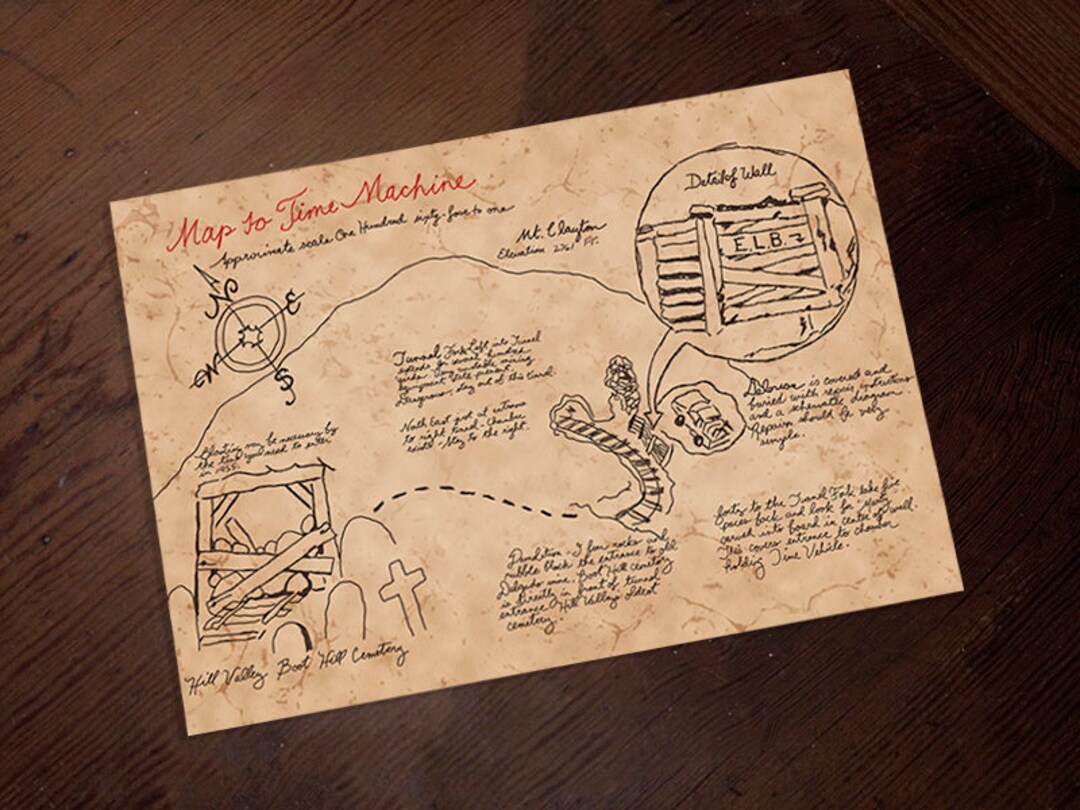 Map to Time Machine
Approximate scale One Hundred sixty-four to one
Mt. Clayton
Elevation Ft.
N
E
W
S
Detail of Wall
E.L.B.
Tunnel Fork Left into Tunnel
extends for several hundred
yards. Very unstable mining
equipment still present.
Dangerous, stay out of this tunnel.
North East just at entrance
to right tunnel - Chamber
exists! Stay to the right.
Delorean is covered and
buried with repair instructions
and a schematic diagram
Repairs should be very
simple.
Blasting may be necessary by
the time you need to enter
in 1955.
to the Tunnel Fork take five
paces back and look for
carved into board in center of wall.
This covers entrance to chamber
holding Time Vehicle.
Condition - A few rocks and
rubble block the entrance to old
Delgado mine. Boot Hill Cemetery
is directly in front of tunnel
entrance. Hill Valleys Oldest
cemetery.
Hill Valley Boot Hill Cemetery